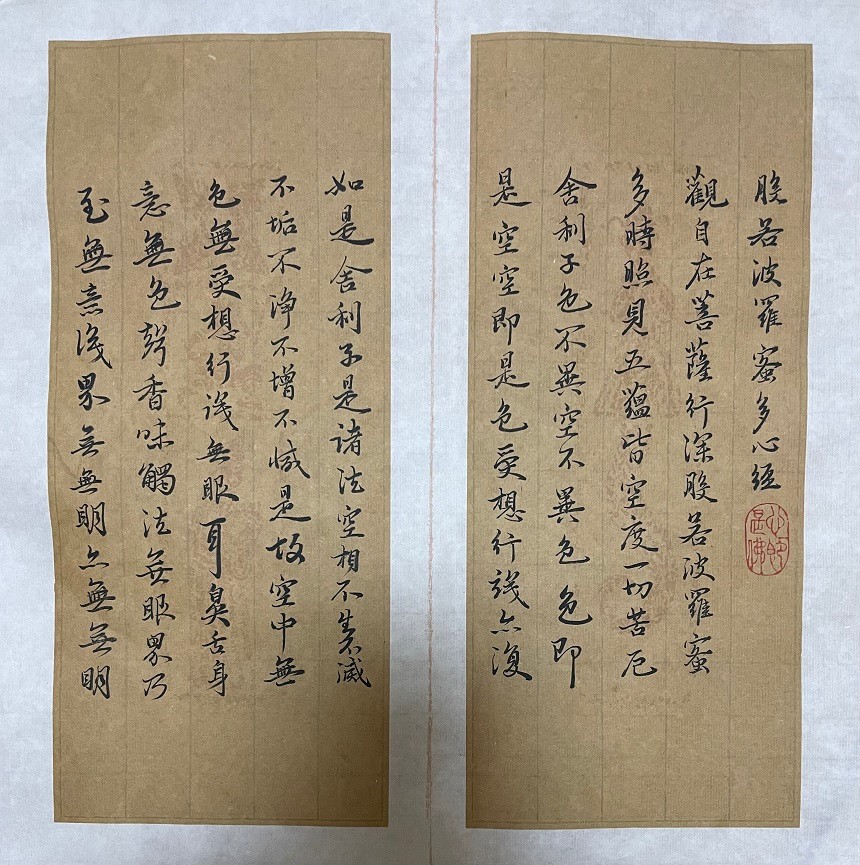 般若波羅蜜多心經
心即是佛
觀自在菩薩行深般若波羅蜜
多時照見五蘊皆空度一切苦厄
舍利子色不異空不異色色即
是空空即是色受想行識亦復
如是舍利子是諸法空相不生滅
不垢不淨不增不減是故空中無
色無受想行識無眼耳鼻舌身
意無色聲香味觸法無眼界乃
至無意識界無無明亦無無明